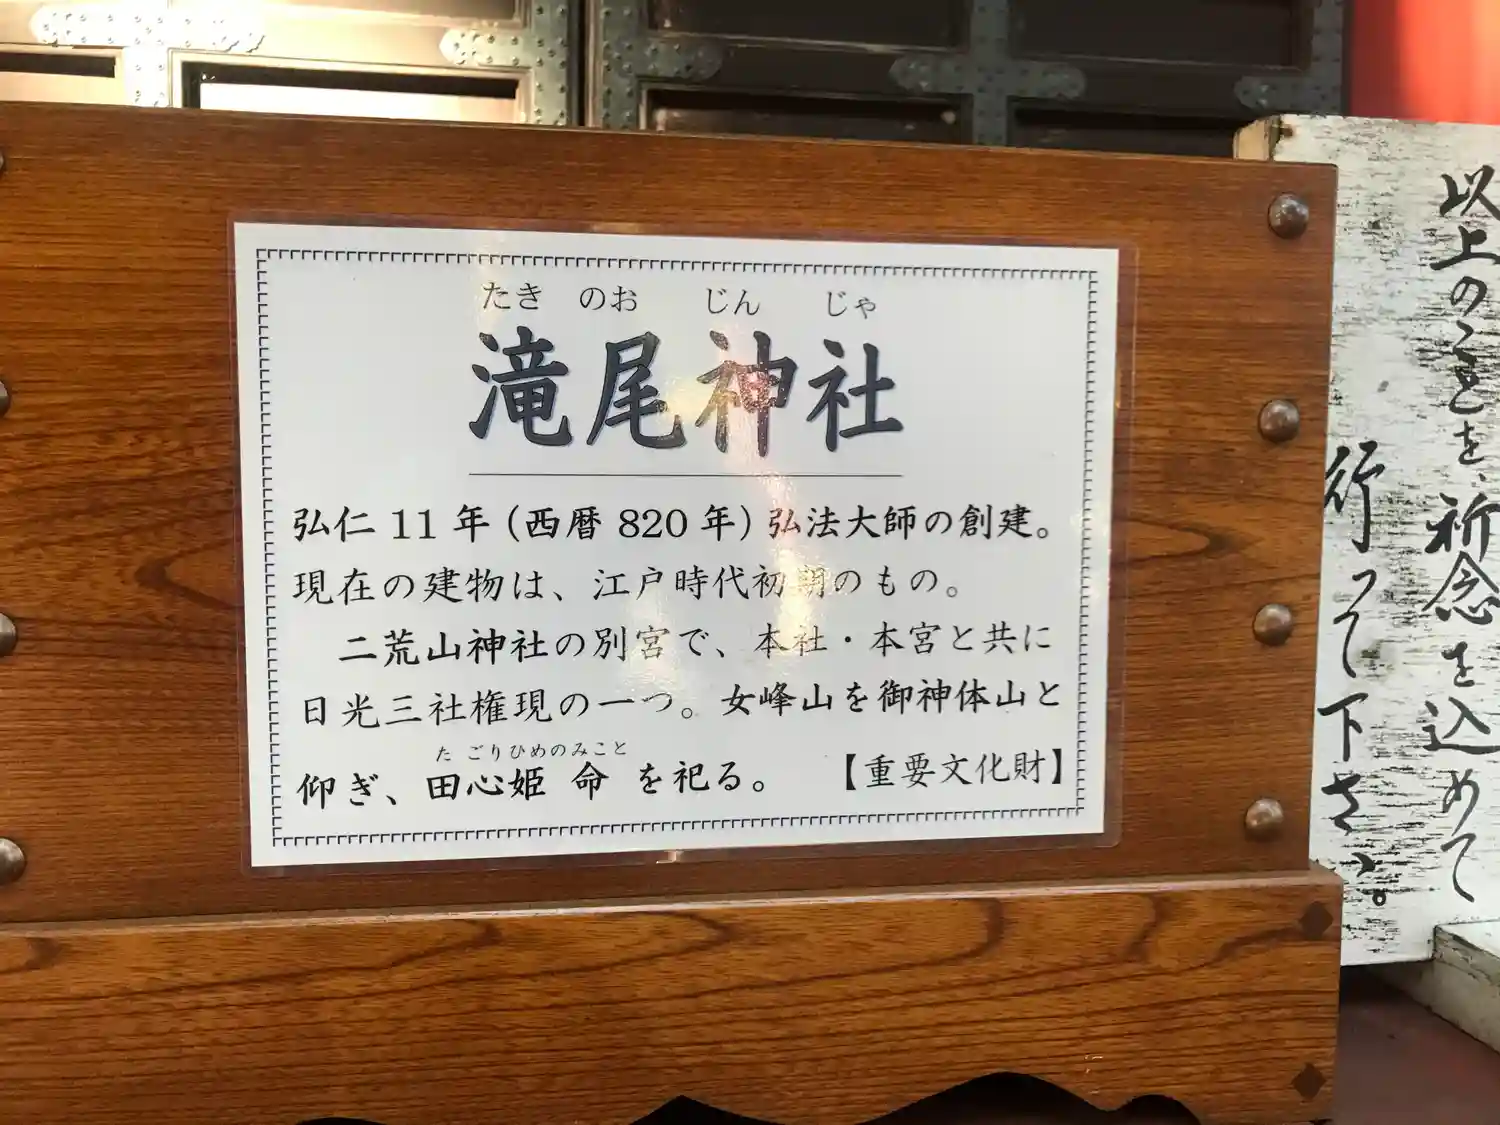 たき のお じん じゃ
滝尾神社
弘仁 11 年 (西暦 820 年) 弘法大師の創建。
現在の建物は、江戸時代初期のもの。
二荒山神社の別宮で、本社・本宮と共に
日光三社権現の一つ。女峰山を御神体山と
た ごりひめのみこと
仰ぎ、田心姫 命 を祀る。 【重要文化財】
以上のことを、祈念を込めて
行って下さい。